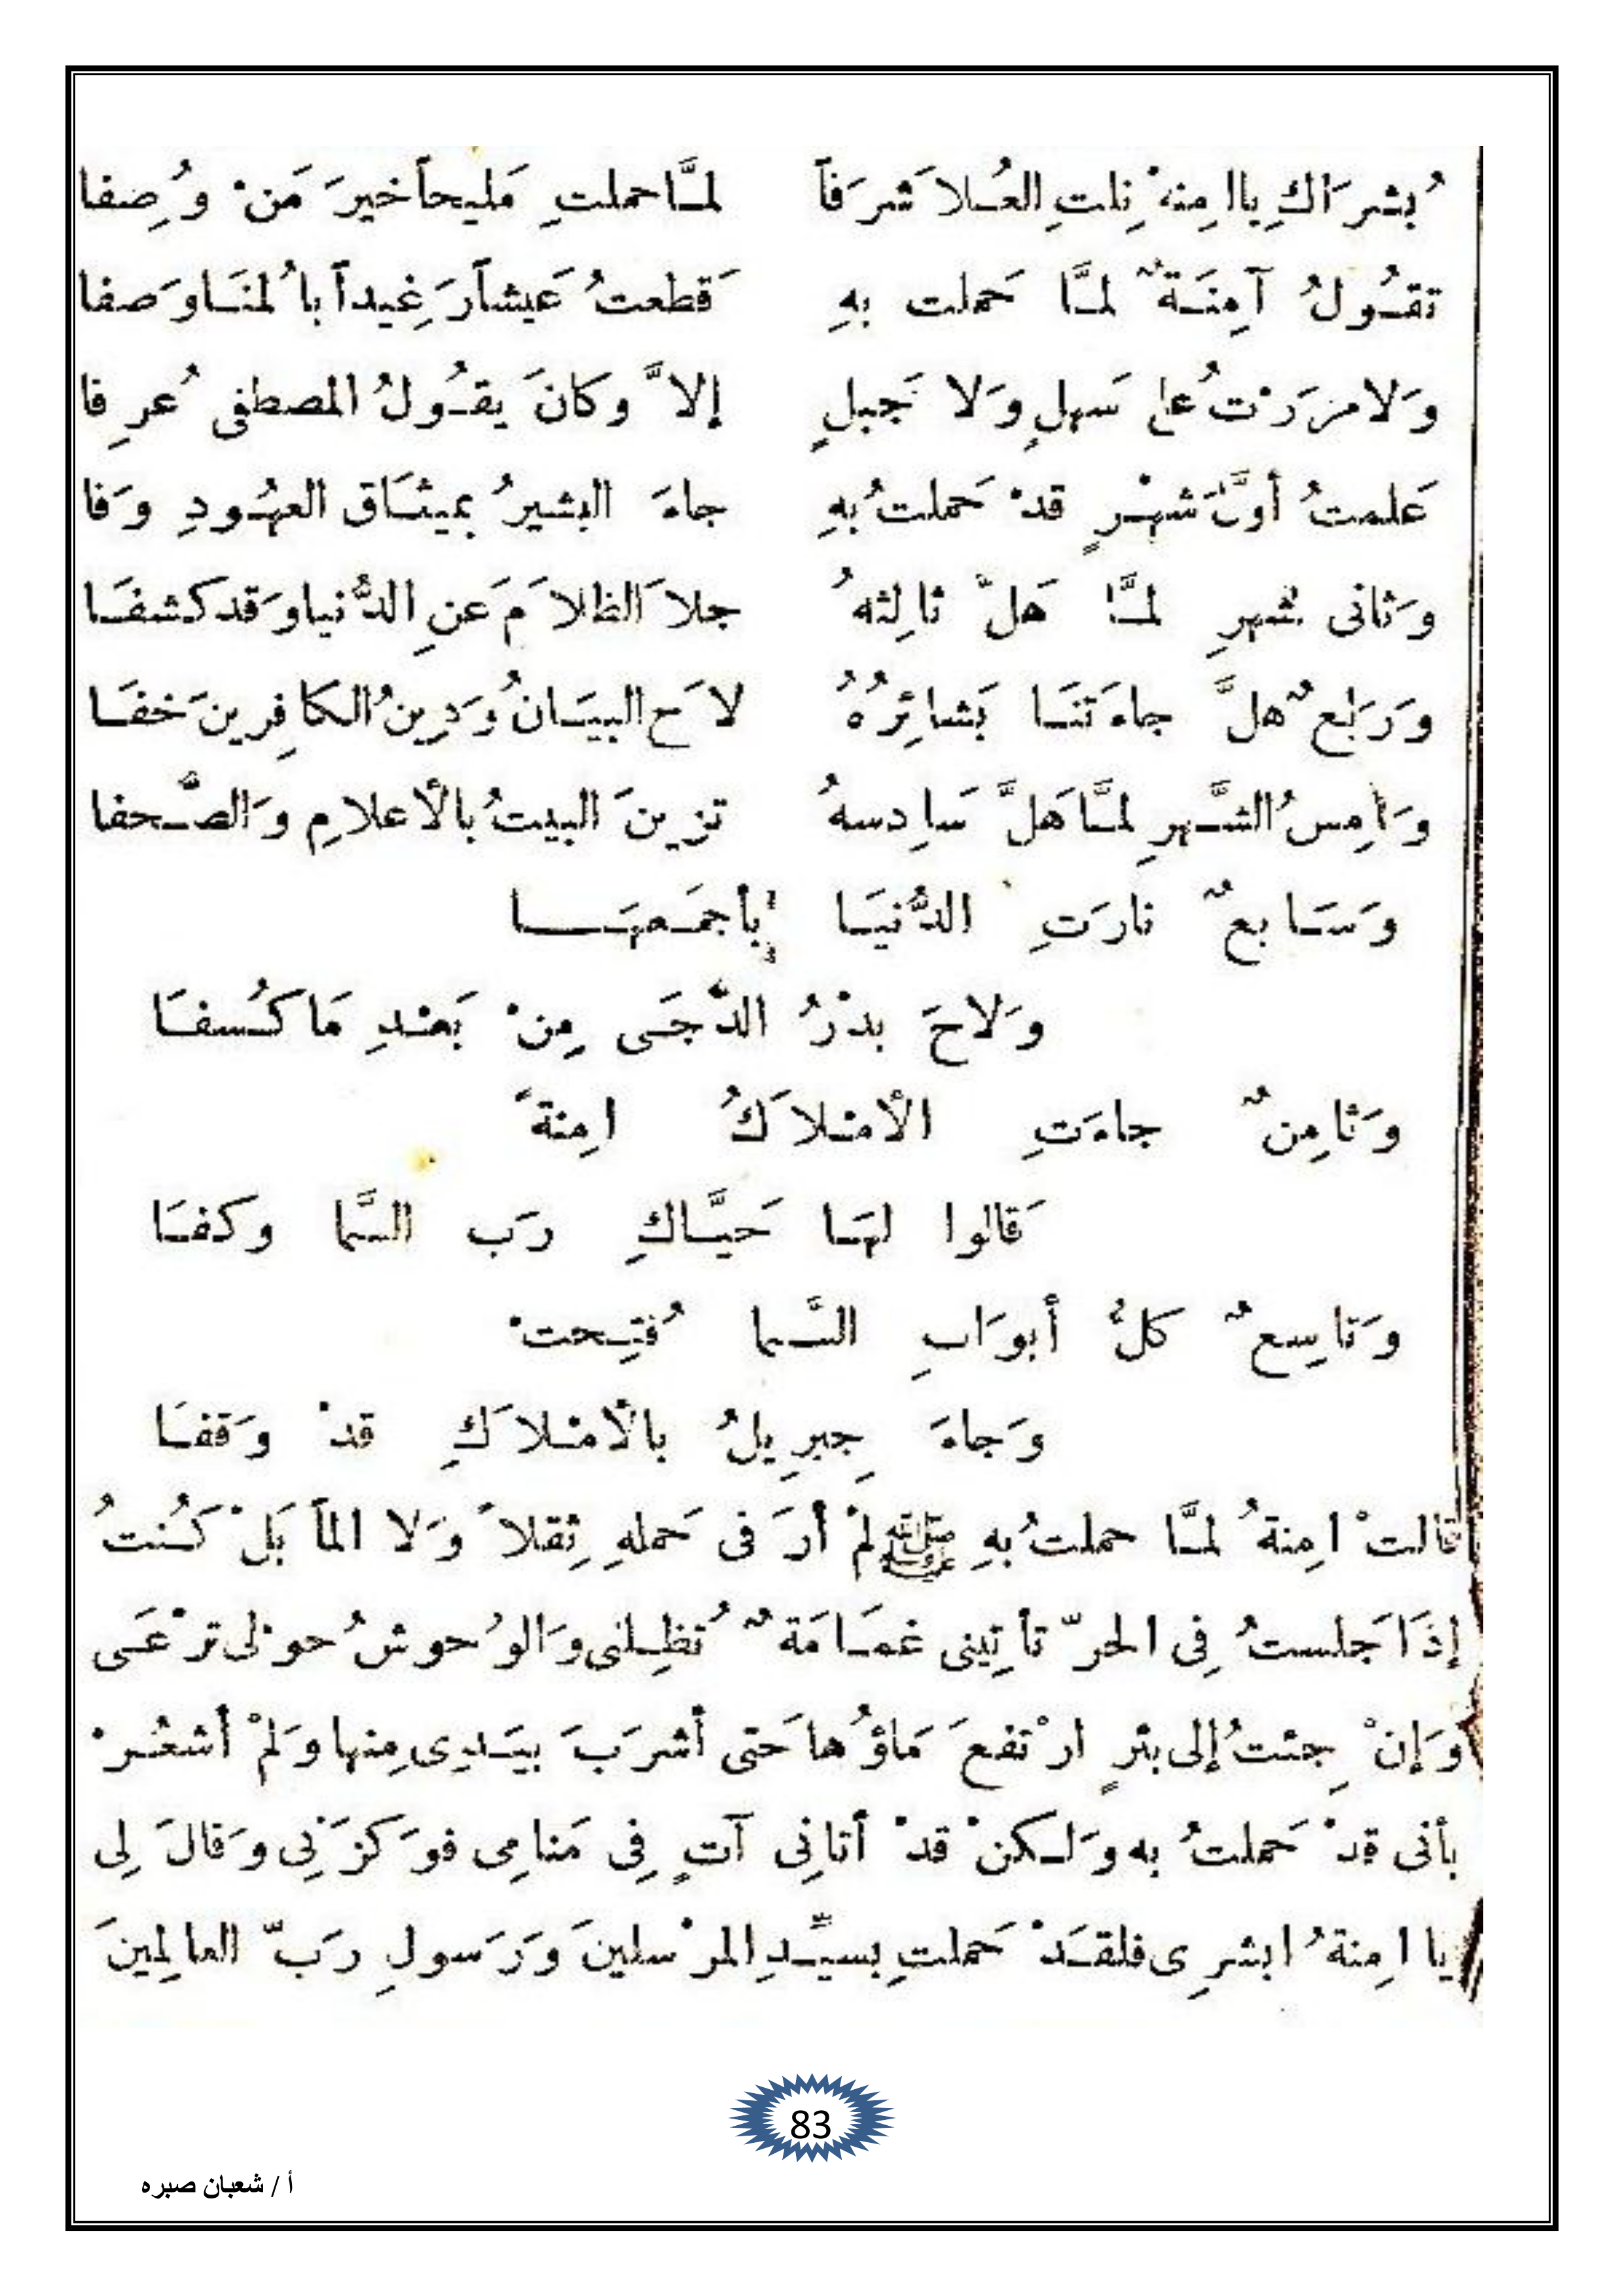 بُشرَاكِ ياامِنهْ نِلتِ العُلا شَرَفاً لمَّا حملتِ مَليحاً خيرَ مَنْ وُصِفا
تقُولُ آمِنَةٌ لمَّا حَملت بهِ قَطعتُ عَيشاً رَغِيداً بالمُنَا وَصفا
وَلا مرَرْتُ على سَهلٍ وَلا جَبلٍ إلاَّ وكانَ يقُولُ المصطفى عُرِفا
عَلمتُ أوَّلَ شهْرٍ قدْ حَملتُ بهِ جاءَ البشيرُ بميثَاق العهُودِ وَفا
وَثانى شهرِ لمَّا هَلَّ ثالِثهُ جلا الظلاَمَ عَنِ الدُّنيا وَقد كشفَا
وَرَابعٌ هلَّ جاءَتنَا بَشائِرُهُ لاحَ البيَانُ وَدِينُ الكافِرينَ خفَا
وَامِسُ الشَّهرِ لمَّا هَلَّ سَادِسهُ تزينَ البيتُ بالأعلامِ وَالصُّحفا
وَسَابعٌ نارَتِ الدُّنيَا بأجمَعهَا
وَلاحَ بدْرُ الدُّجَى مِنْ بَعْدِ مَا كُسفَا
وَثامِنٌ جاءَتِ الأمْلاَكُ امِنةَ
قَالوا لهَا حَيَّاكِ رَب السَّما وكفَا
وَتاسِعٌ كلُّ أبوَابِ السَّما فُتِحتْ
وَجاءَ جِبرِيلُ بالأمْلاَكِ قدْ وَقفَا
قالتْ امِنةُ لمَّا حملتُ بهِ ﷺ لمْ أرَ فى حَملهِ ثِقلاً وَلا الماً بَلْ كُنتُ
إذَا جَلستُ فِى الحرّ تأتِينى غمَامَةٌ تُظِلنى وَالوُحوشُ حوْلى ترْعَى
وَإنْ جِئتُ إلى بئرٍ ارْتفعَ مَاؤُها حَتى أشرَبَ بيَدِى مِنها وَلمْ أشعُرْ
بأنى قدْ حَملتُ به وَلكنْ قدْ أتانِى آتٍ فِى مَنامِى فوَكزَنِى وَقالَ لِى
يا امِنةُ ابشرِى فلقَدْ حَملتِ بسيِّدِ المرْسلينَ وَرَسولِ رَبّ العالمِينَ
83
أ / شعبان صبره